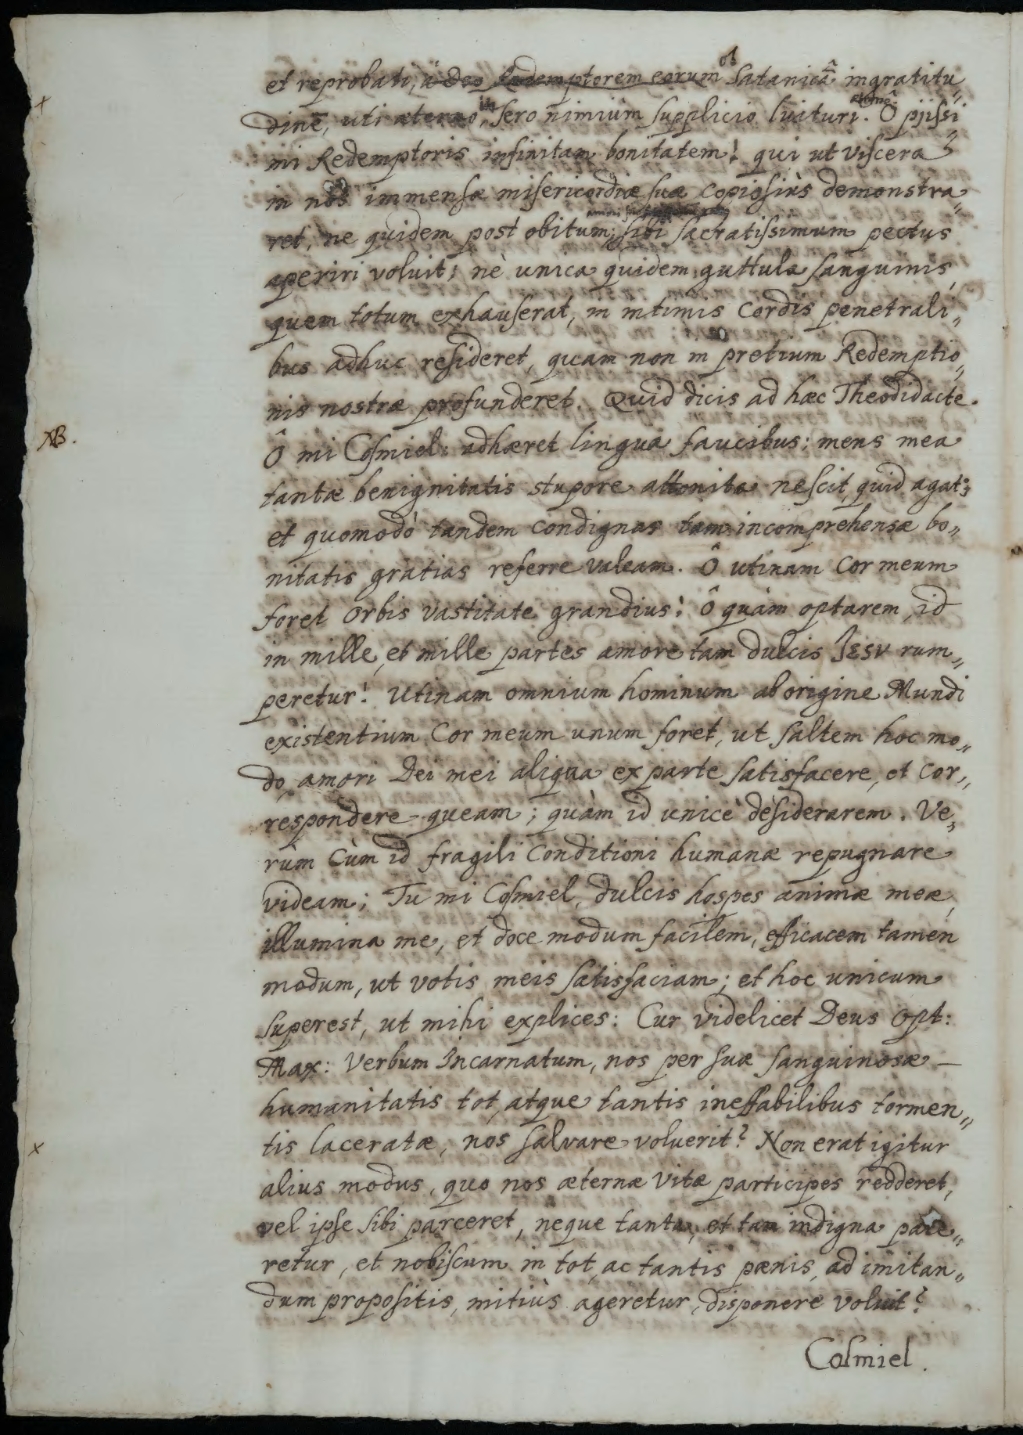 et reprobati, à Deo Redemptorem eorum Satanicâ ingratitu„
dine, uti aterno, sero nimium supplicio luituri. Ô pjissi
mi Redemptoris infinitam bonitatem! qui ut viscera
in nos immensæ misericordiæ suæ copiosiùs demonstra„
ret, ne quidem post obitum, sibi sacratissimum pectus
aperiri voluit; nè unica quidem guttula sanguinis,
quem totum exhauserat, in intimis Cordis penetrali„
bus adhuc resideret, quam non in pretium Redemptio„
nis nostræ profunderet. Quid dicis ad hæc Theodidacte.
NB.
Ô mi Cosmiel: adhæret lingua faucibus: mens mea
tantæ benignitatis stupore attonita nescit quid agat;
et quomodò tandem condignas tam incomprehensæ bo„
nitatis gratias referre valeam. Ô utinam Cor meum
foret Orbis vastitate grandius! Ô quàm optarem, id
in mille, et mille partes amore tam dulcis JESV rum„
peretur! Utinam omnium hominum ab origine Mundi
existentium Cor meum unum foret, ut saltem hoc mo„
do, amori Dei mei aliqua ex parte satisfacere, et Cor„
respondere queam; quàm id unicè desiderarem. Ve„
rùm Cùm id fragili Conditioni humanæ repugnare
videam; Tu mi Cosmiel, dulcis hospes animæ meæ,
illumina me, et doce modum facilem, efficacem tamen
modum, ut votis meis satisfaciam; et hoc unicum
superest, ut mihi explices: Cur videlicet Deus Opt:
Max: Verbum Incarnatum, nos per suæ sanguinosæ —
humanitatis tot, atque tantis ineffabilibus tormen„
tis laceratæ, nos salvare voluerit? Non erat igitur
alius modus, quo nos æternæ Vitæ participes redderet,
vel ipse sibi parceret, neque tanta, et tam indigna pate„
retur, et nobiscum in tot, ac tantis pœnis, ad imitan„
dum propositis, mitiùs ageretur, disponere voluit?
Cosmiel.